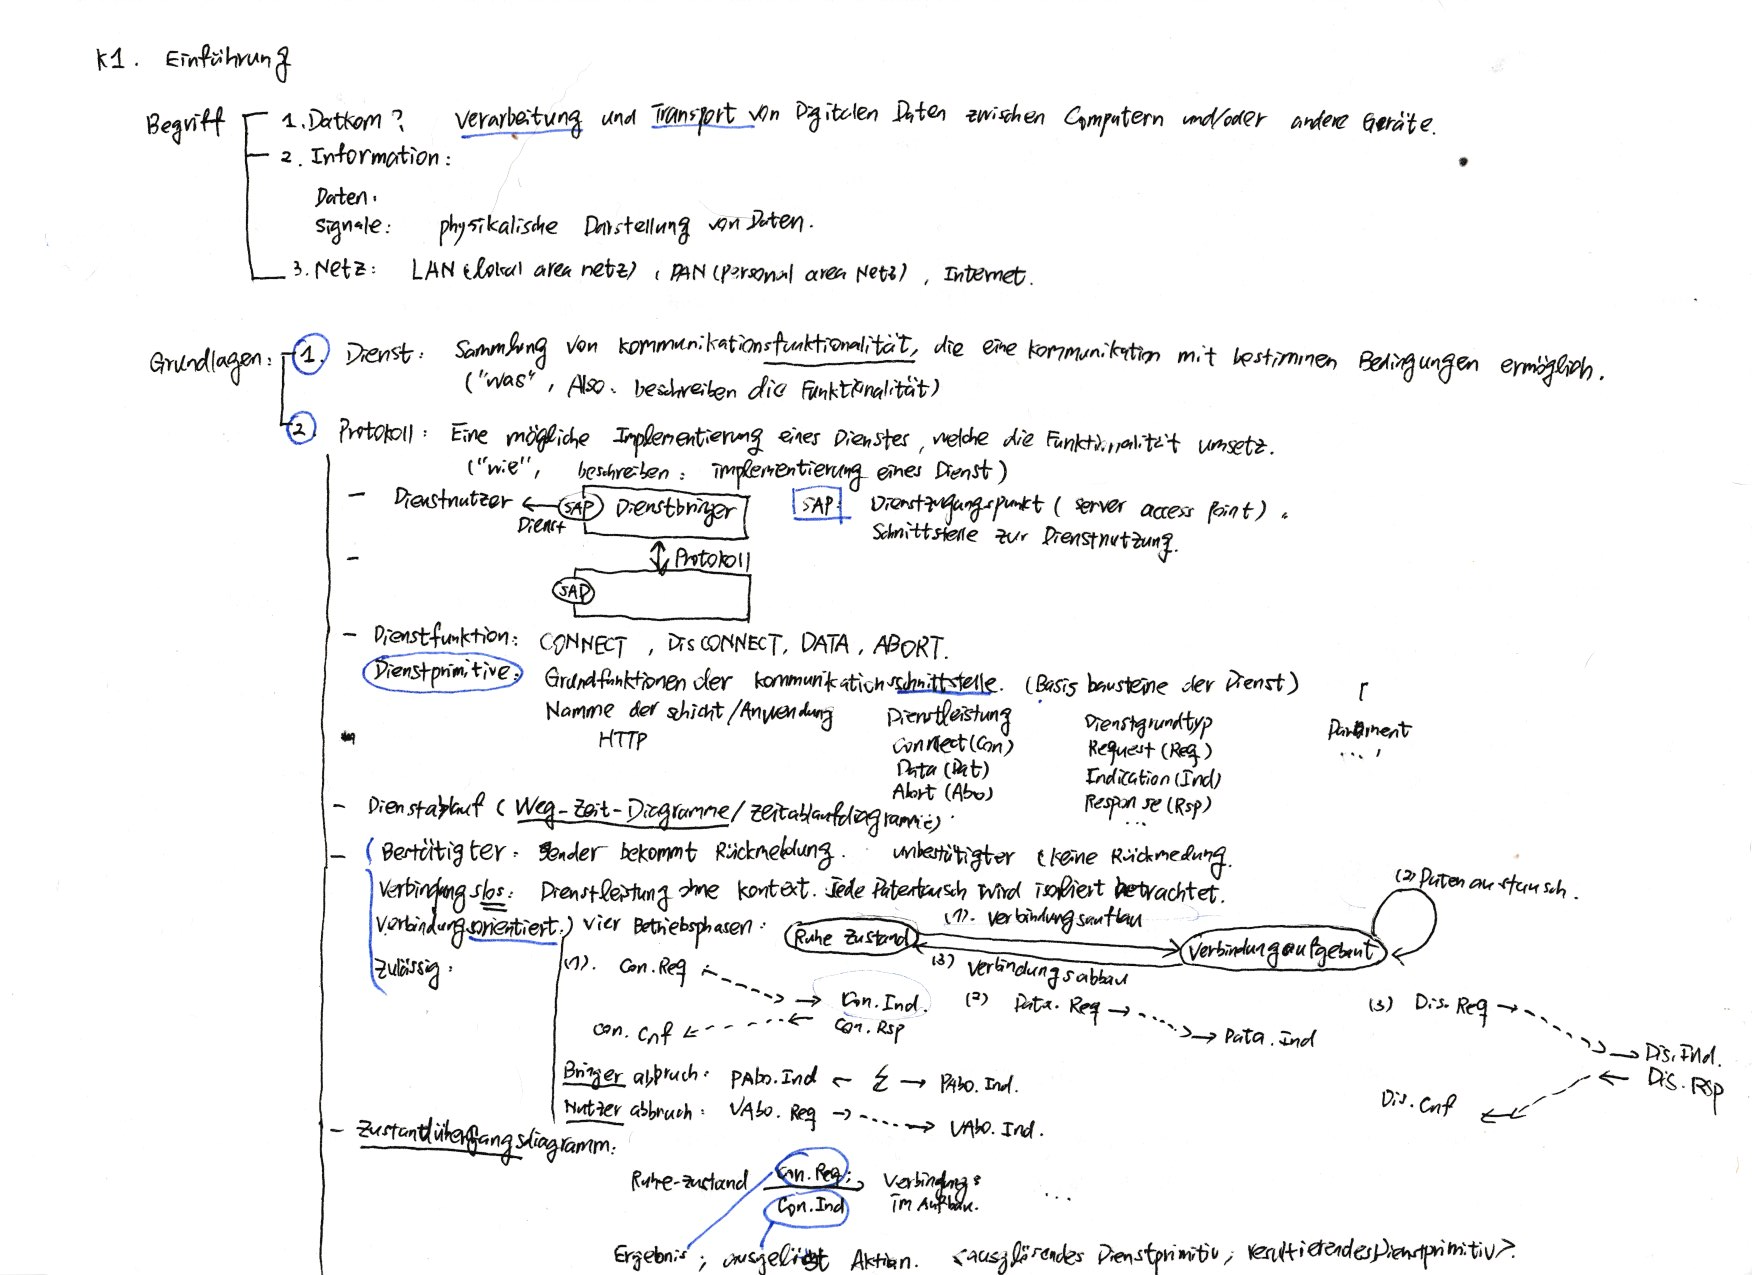 K1. Einführung
Begriff
1. Datkom? Verarbeitung und Transport von Digitalen Daten zwischen Computern und/oder andere Geräte.
2. Information:
Daten:
Signale: physikalische Darstellung von Daten.
3. Netz: LAN (lokal area netz), PAN (Personal area Netz), Internet.
Grundlagen:
1. Dienst: Sammlung von Kommunikationsfunktionalität, die eine Kommunikation mit bestimmen Bedingungen ermöglich.
("was", Also. beschreiben die Funktionalität)
2. Protokoll: Eine mögliche Implementierung eines Dienstes, welche die Funktionalität umsetz.
("wie", beschreiben: implementierung eines Dienst)
- Dienstnutzer ← SAP Dienstbringer
Dienst
SAP: Dienstzugangspunkt (server access point).
Schnittstelle zur Dienstnutzung.
- Protokoll
SAP
- Dienstfunktion: CONNECT, DisCONNECT, DATA, ABORT.
Dienstprimitive: Grundfunktionen der Kommunikationsschnittstelle. (Basis bausteine der Dienst)
Namme der schicht/Anwendung Dienstleistung Dienstgrundtyp Parament
HTTP Connect (Con) Request (Req) ...,
Data (Dat) Indication (Ind)
Abort (Abo) Response (Rsp)
...
- Dienstablauf (Weg-Zeit-Diagramme/Zeitablaufdiagramme)
- (Bestätigter: Sender bekommt Rückmeldung. unbestätigter (keine Rückmedung.
Verbindungslos: Dienstleistung ohne Kontext. Jede Datentausch wird isoliert betrachtet.
Verbindungsorientiert:) vier Betriebsphasen: Ruhe Zustand (1). Verbindungsaufbau Verbindungaufgebaut (2) Datenaustausch.
(3) Verbindungsabbau
Zulässig:
(1). Con.Req → Con.Ind. (2) Data.Req → Data.Ind (3) Dis.Req → Dis.Ind.
Con.Cnf ← Con.Rsp Dis.Cnf ← Dis.Rsp
Bringer abbruch: PAbo.Ind ← → PAbo.Ind.
Nutzer abbruch: VAbo.Req → VAbo.Ind.
- Zustandübergangsdiagramm:
Ruhe-zustand Con.Req; Verbindungs
Con.Ind im Aufbau. ...
Ergebnis; ausgelöst Aktion. <auslösendes Dienstprimitiv; resultierendes Dienstprimitiv>.